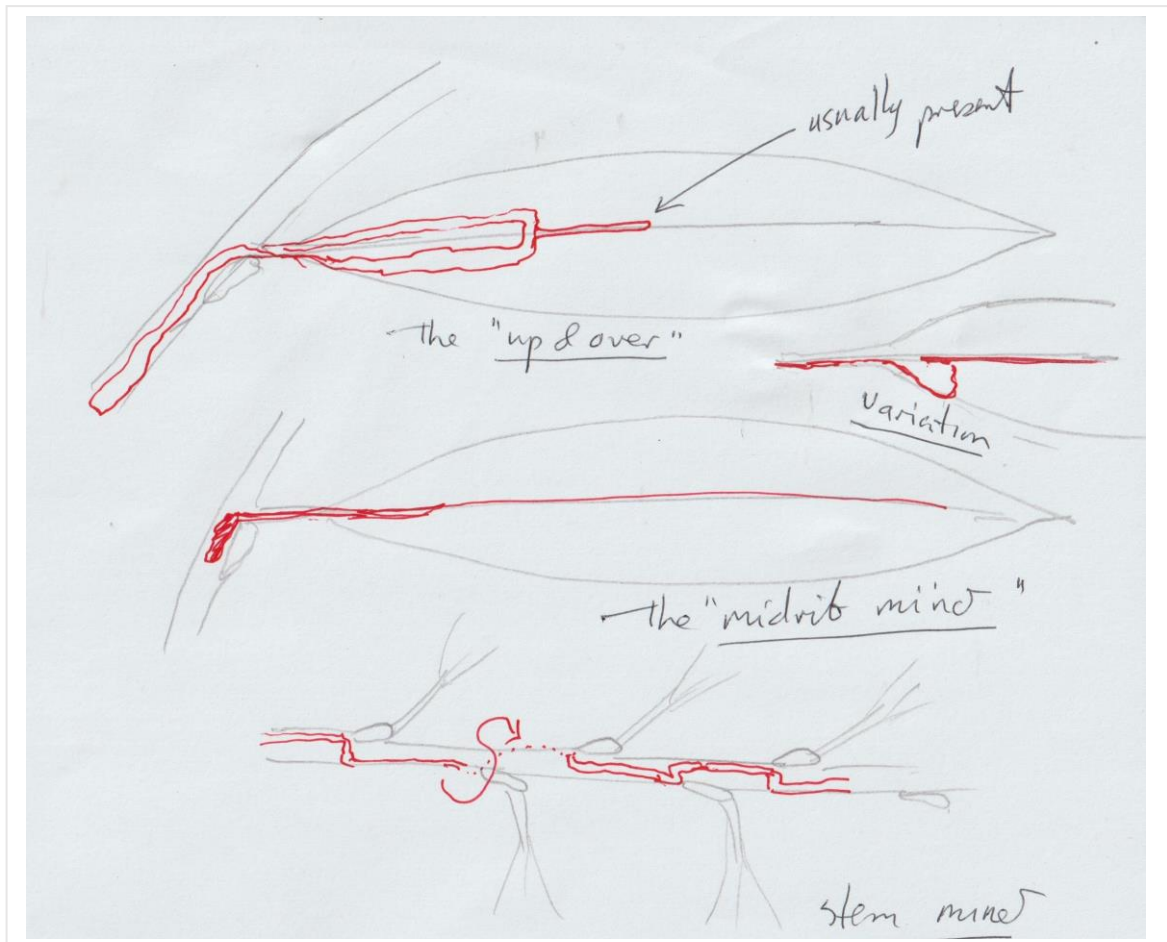 usually present
the "up & over"
variation
the "midrib mine"
stem mine